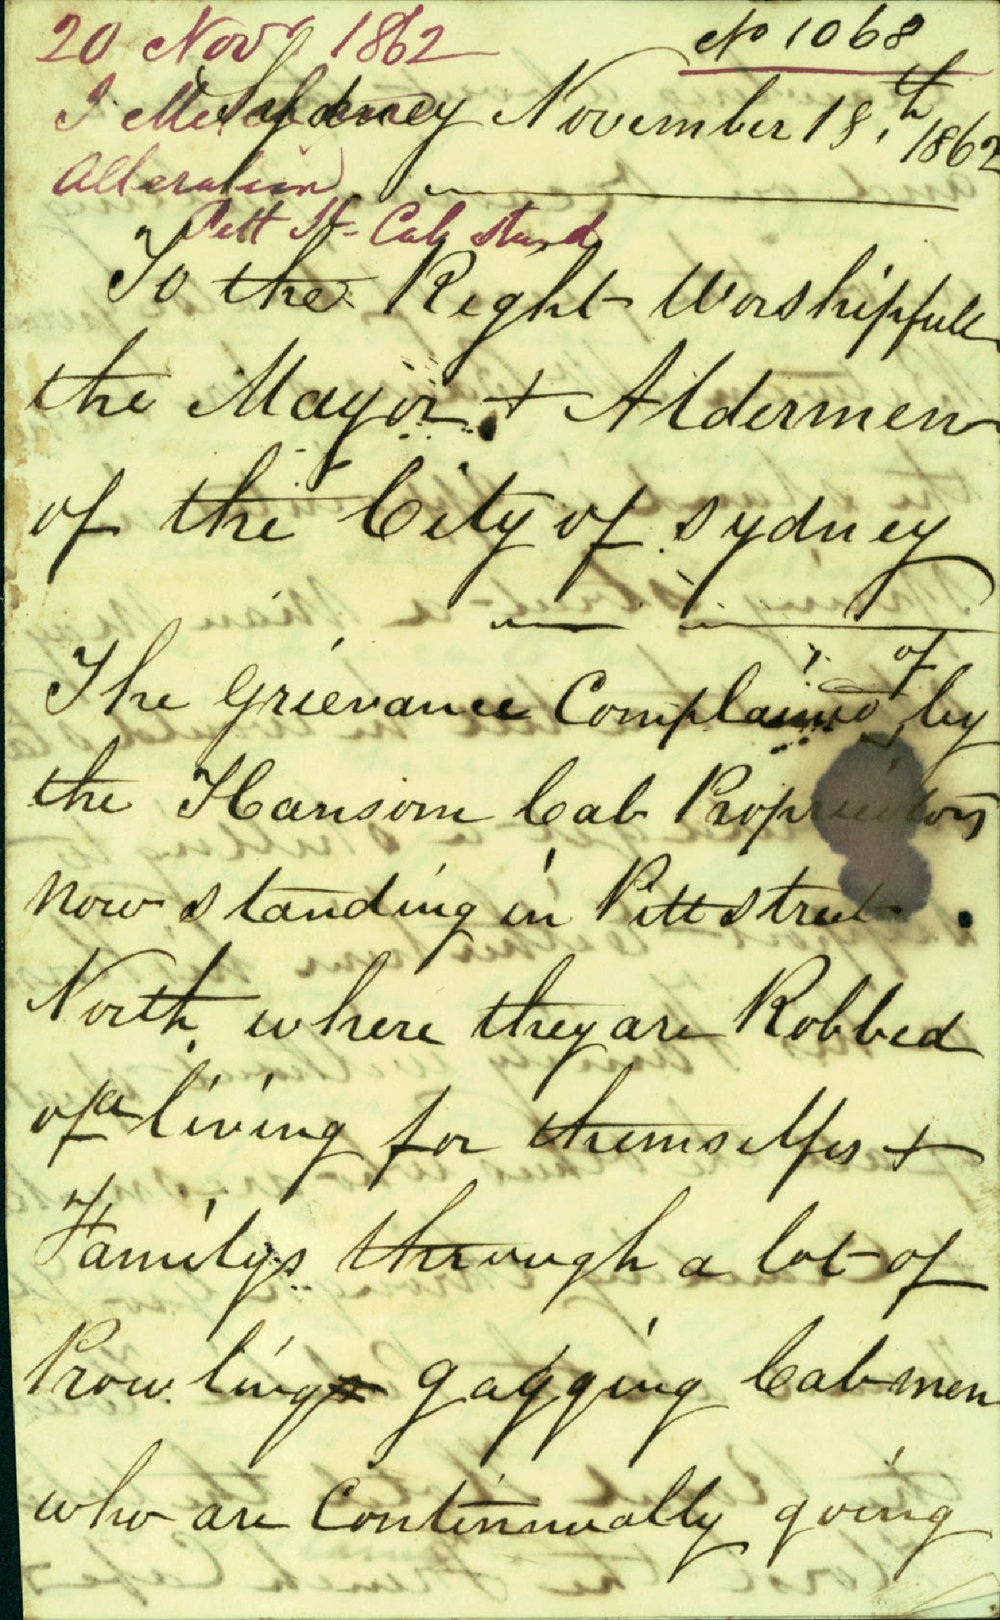 20 Novr 1862
No 1068
Sydney November 18.th 1862
Alteration
Pitt St Cab stand
To the Right Worshipfull
the Mayor + Aldermen
of the City of Sydney
The Grievance Complained of by
the Hansom Cab Proprietors
now standing in Pitt street
North where they are Robbed
of a living for themselfes +
Familys through a lot of
Prowling gagging Cabmen
who are Continually going